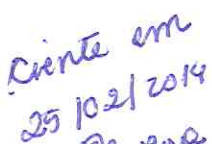 Ciente em
25/02/2014